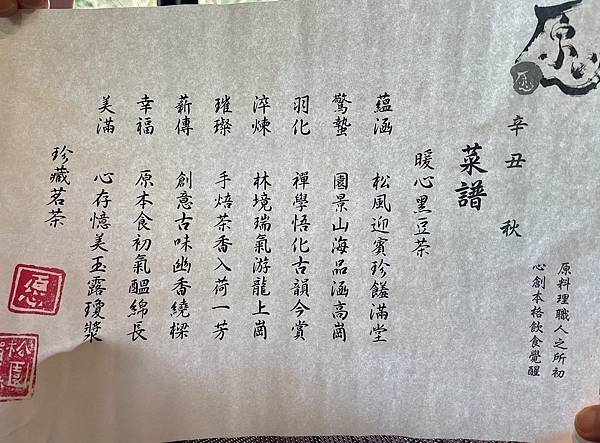 原料理職人之所初
心創本格飲食覺醒
辛丑 秋
菜譜
暖心黑豆茶
蘊涵 松風迎賓珍饈滿堂
驚蟄 園景山海品涵高崗
羽化 禪學悟化古韻今賞
淬煉 林境瑞氣游龍上崗
璀璨 手焙茶香入荷一芳
薪傳 創意古味幽香繞樑
幸福 原本食初氣醞綿長
美滿 心存憶美玉露瓊漿
珍藏茗茶